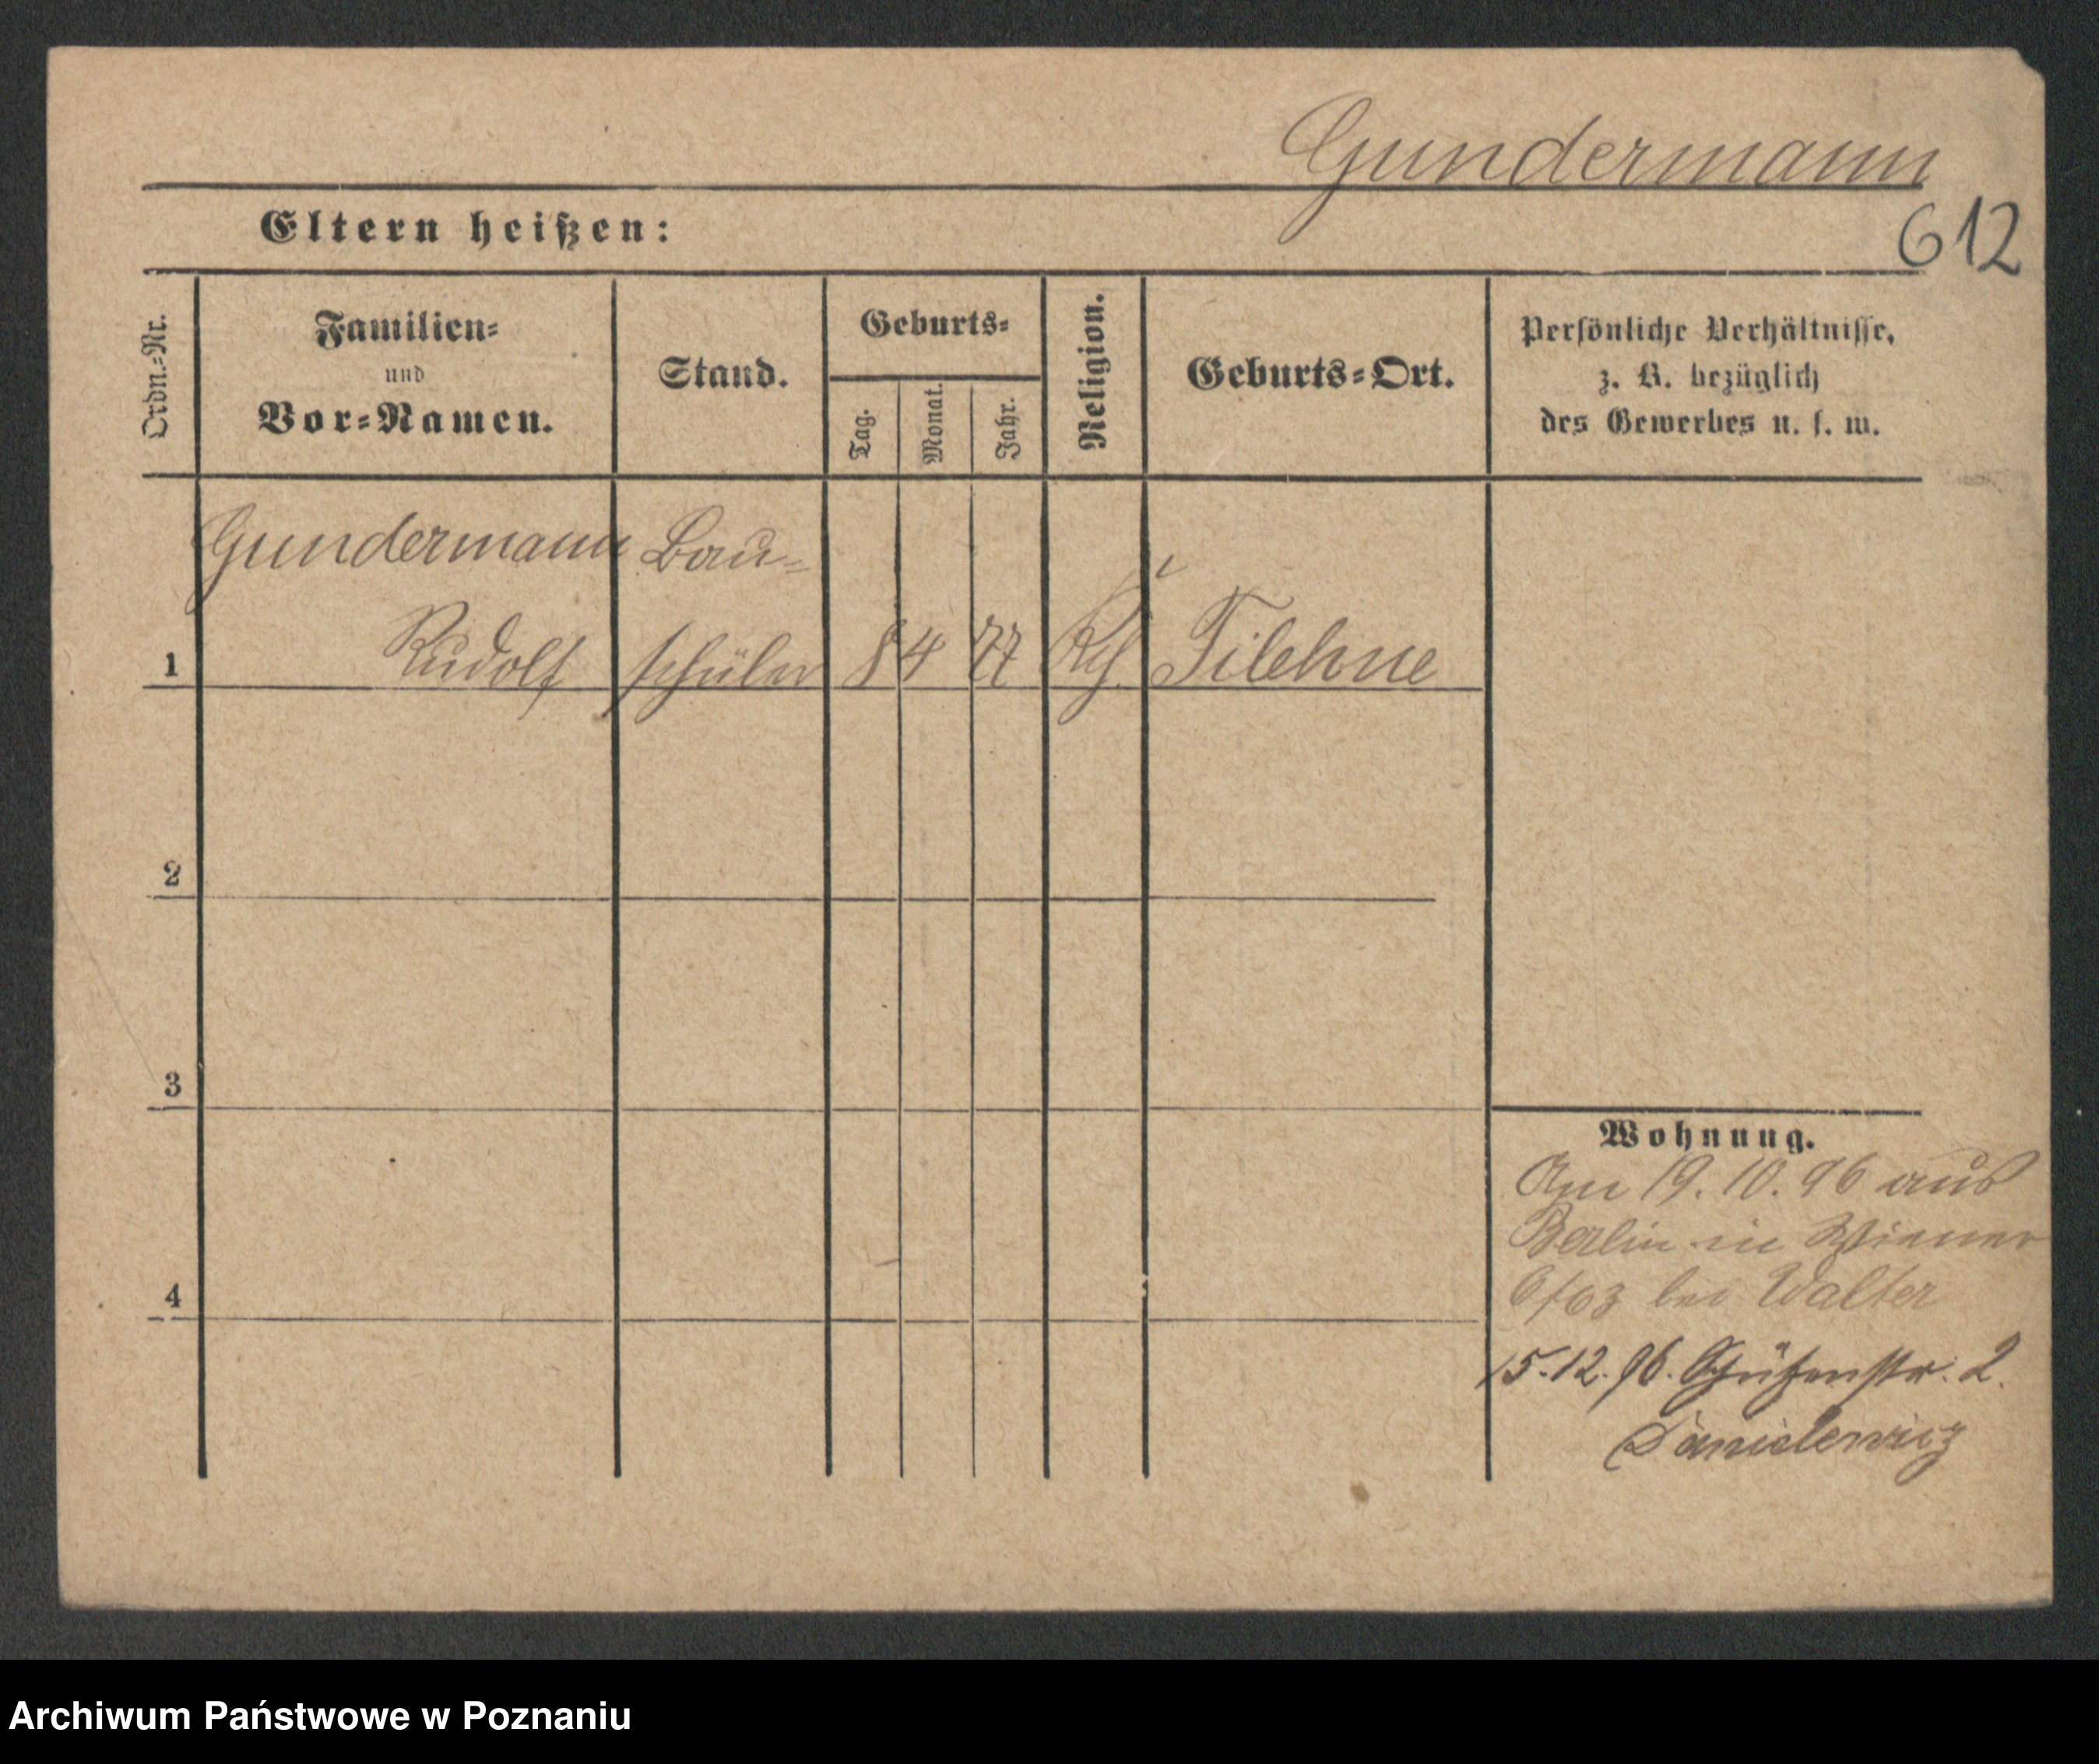 Gundermann
612
Eltern heißen:
Ordn.-Nr.
Familien-
und
Vor-Namen.
Stand.
Geburts-
Tag.
Monat.
Jahr.
Religion.
Geburts-Ort.
Persönliche Verhältnisse,
z. B. bezüglich
des Gewerbes u. s. w.
Gundermann Bau-
1 Rudolf schüler 8 4 77 Filehne
2
3
4
Wohnung.
Am 19. 10. 96 aus
Berlin in
bei Walter
15.12.96. Schützenstr. 2.
Danielewicz
Archiwum Państwowe w Poznaniu